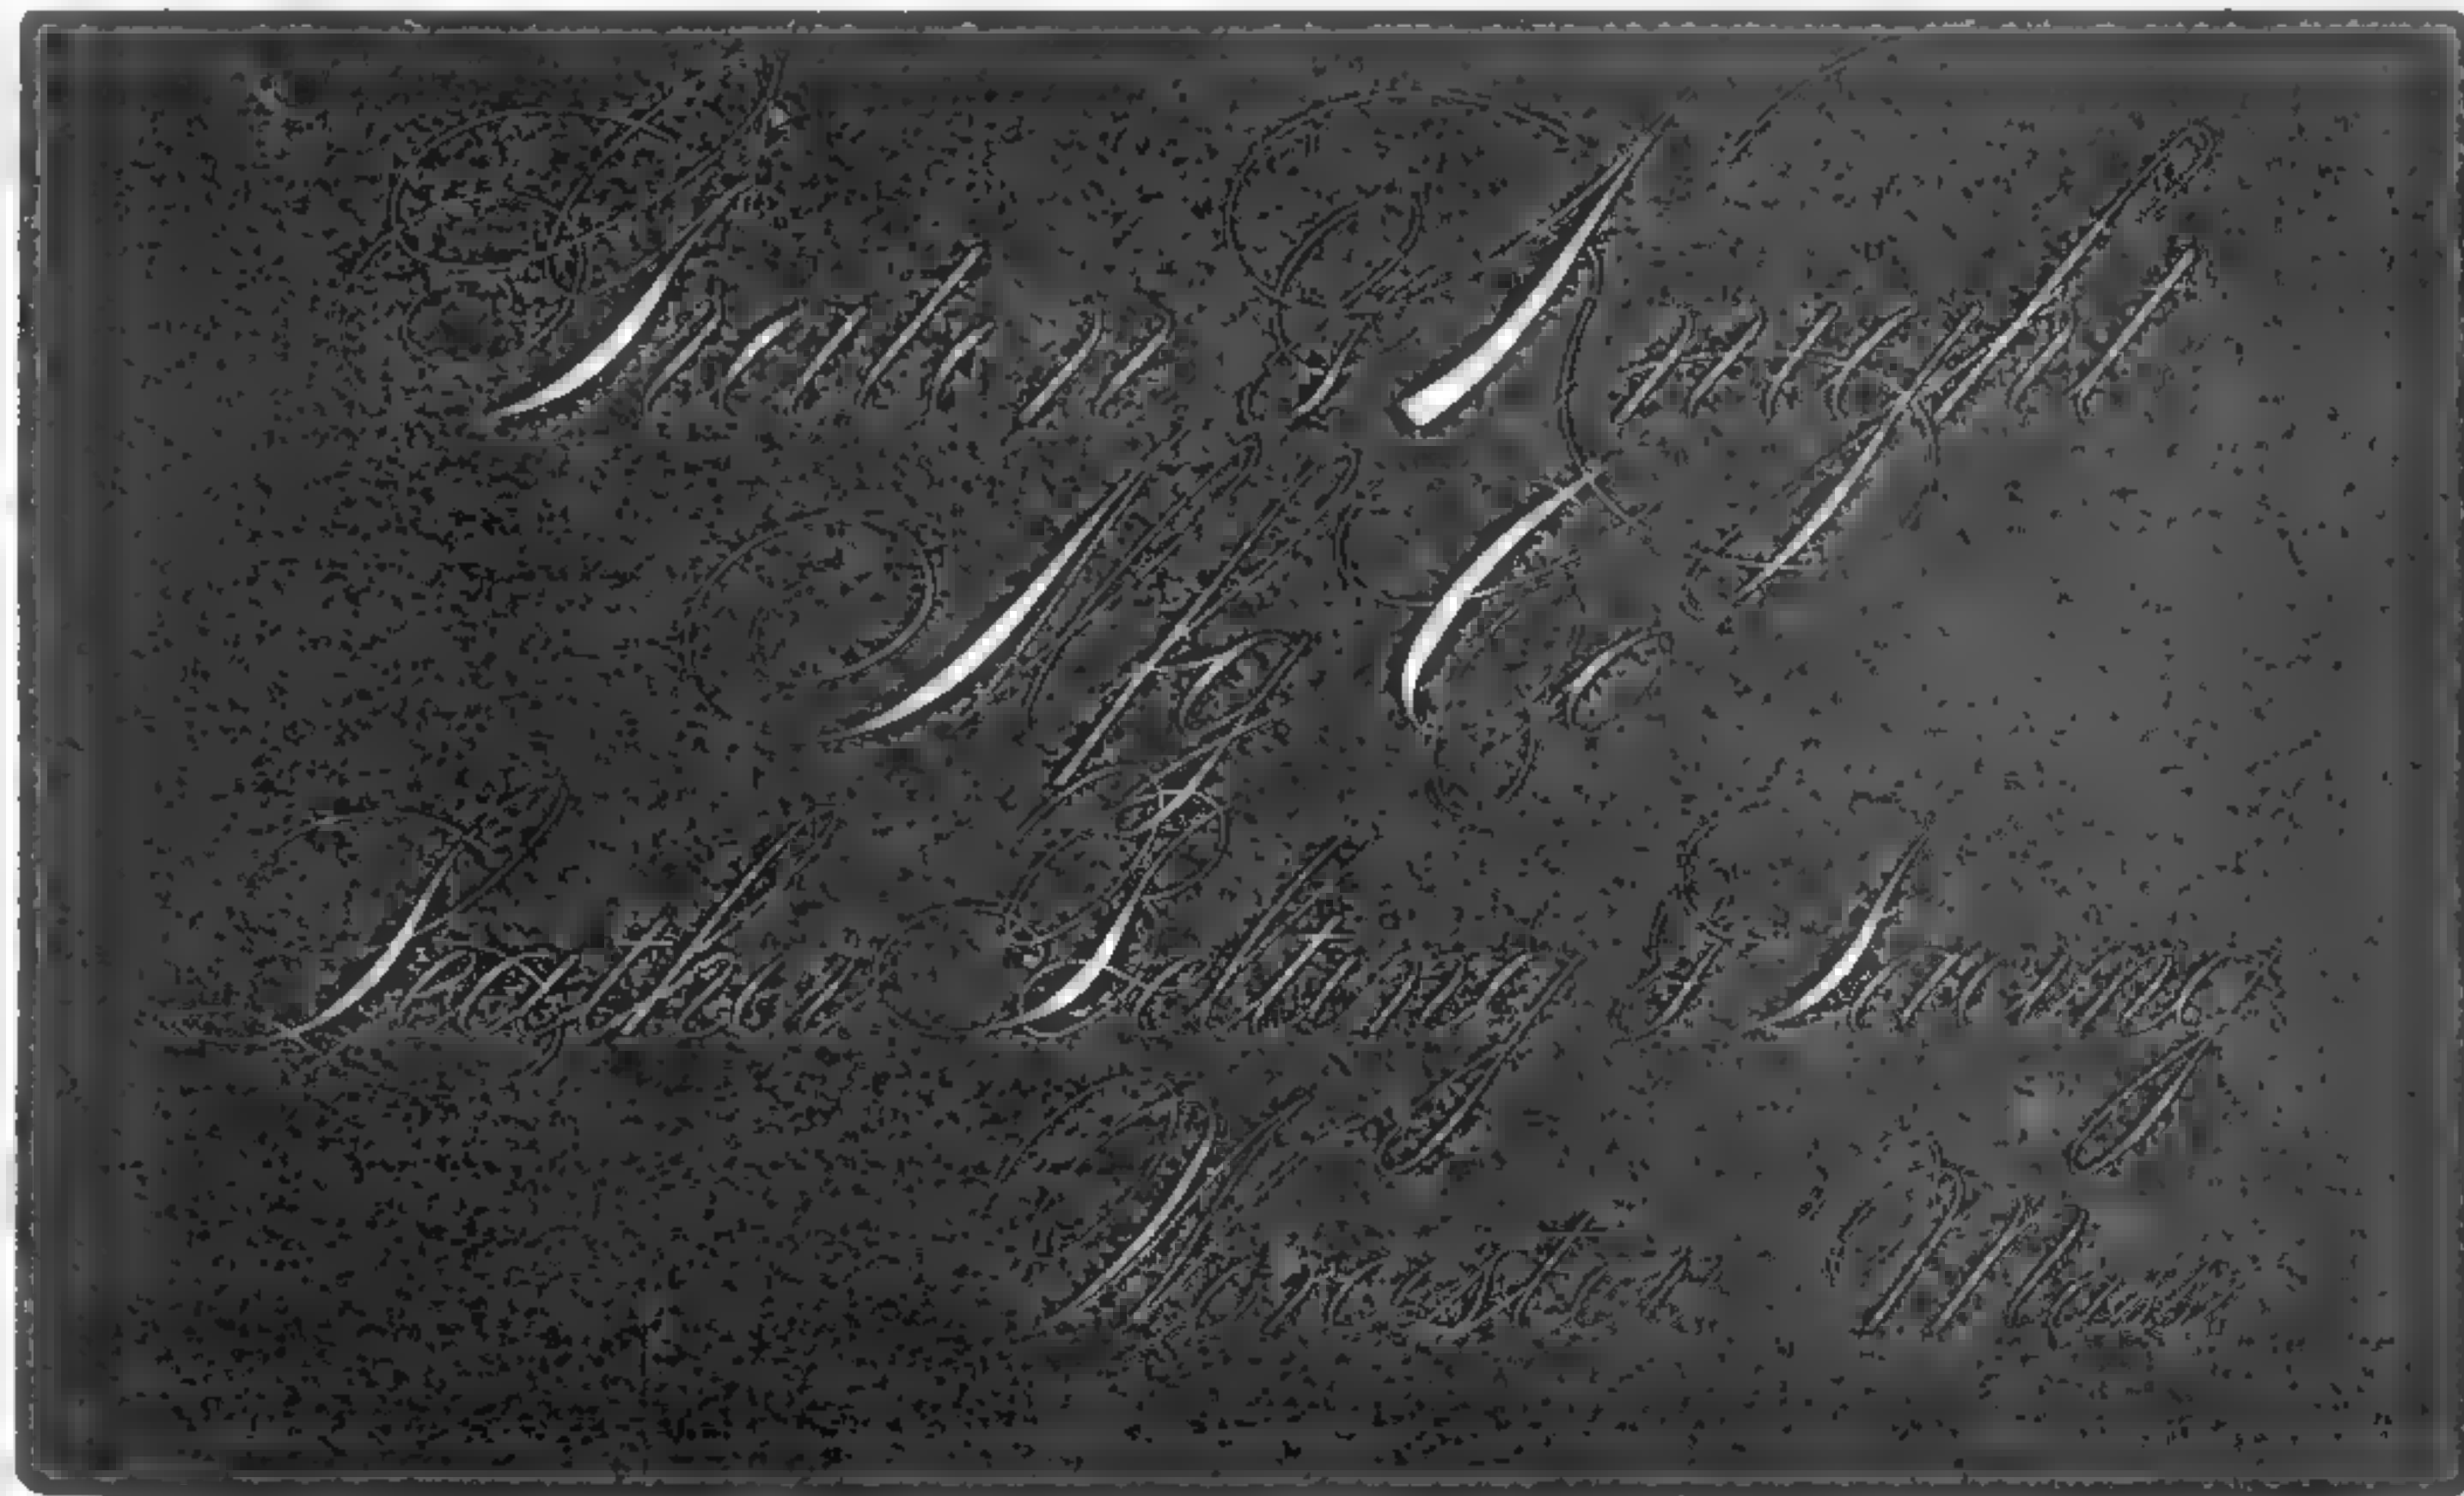 Graton & Knight
Mfg Co
Leather Belting &
Worcester Mass